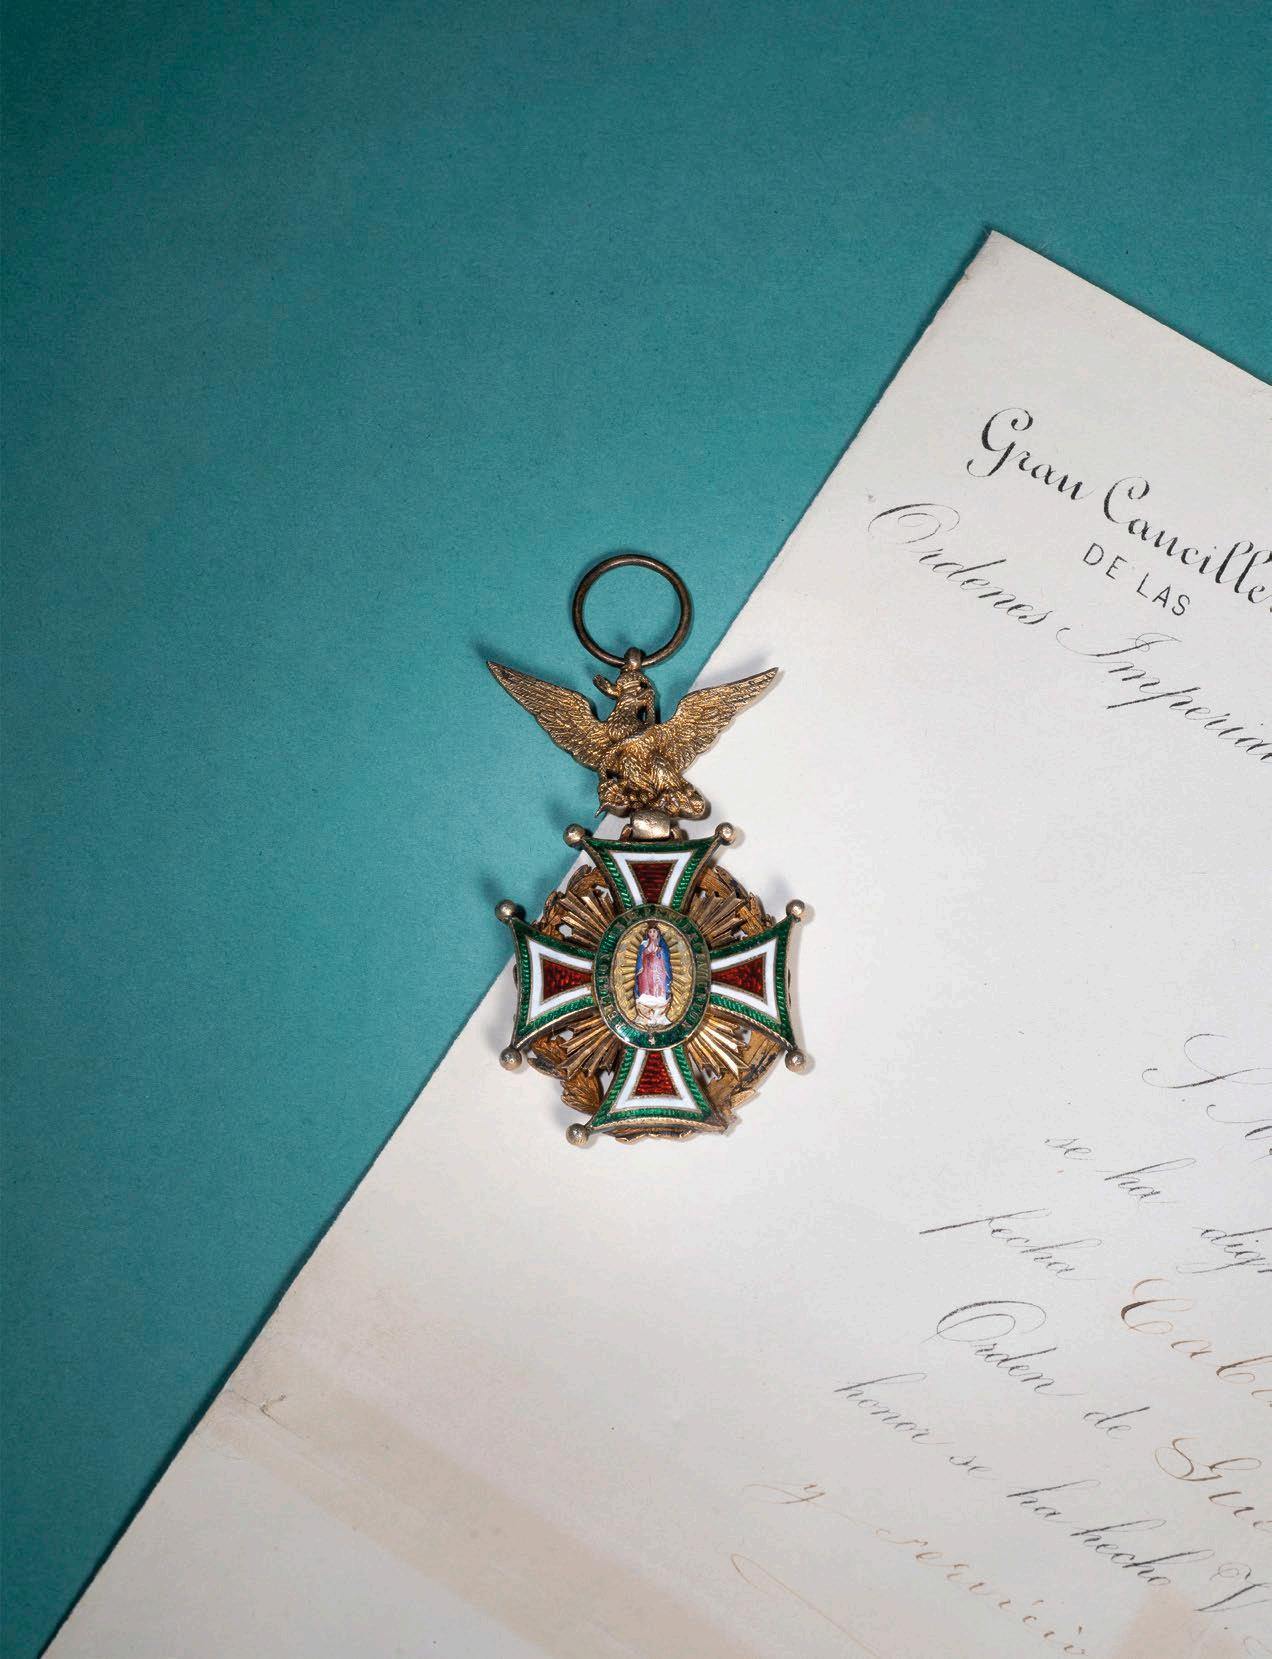 Gran Cancille
DE LAS
Ordenes Imperial
S. M.
se ha dign
fecha Cab
Orden de Gu
honor se ha hecho V.
y servicio